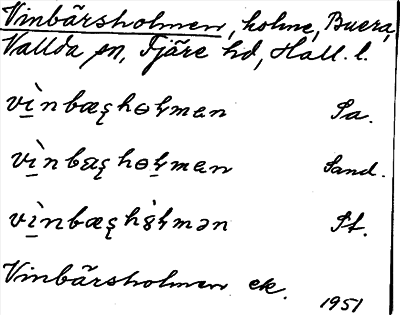 Vinbärsholmen, holme, Buera,
Vallda sn, Fjäre hd, Hall. l.
vìnbæʂhɵɽmen Sa.
vìnbæʂhɵɽmen Sand.
vìnbæʂhɵ̀ɽmən St.
Vinbärsholmen ek.
1951